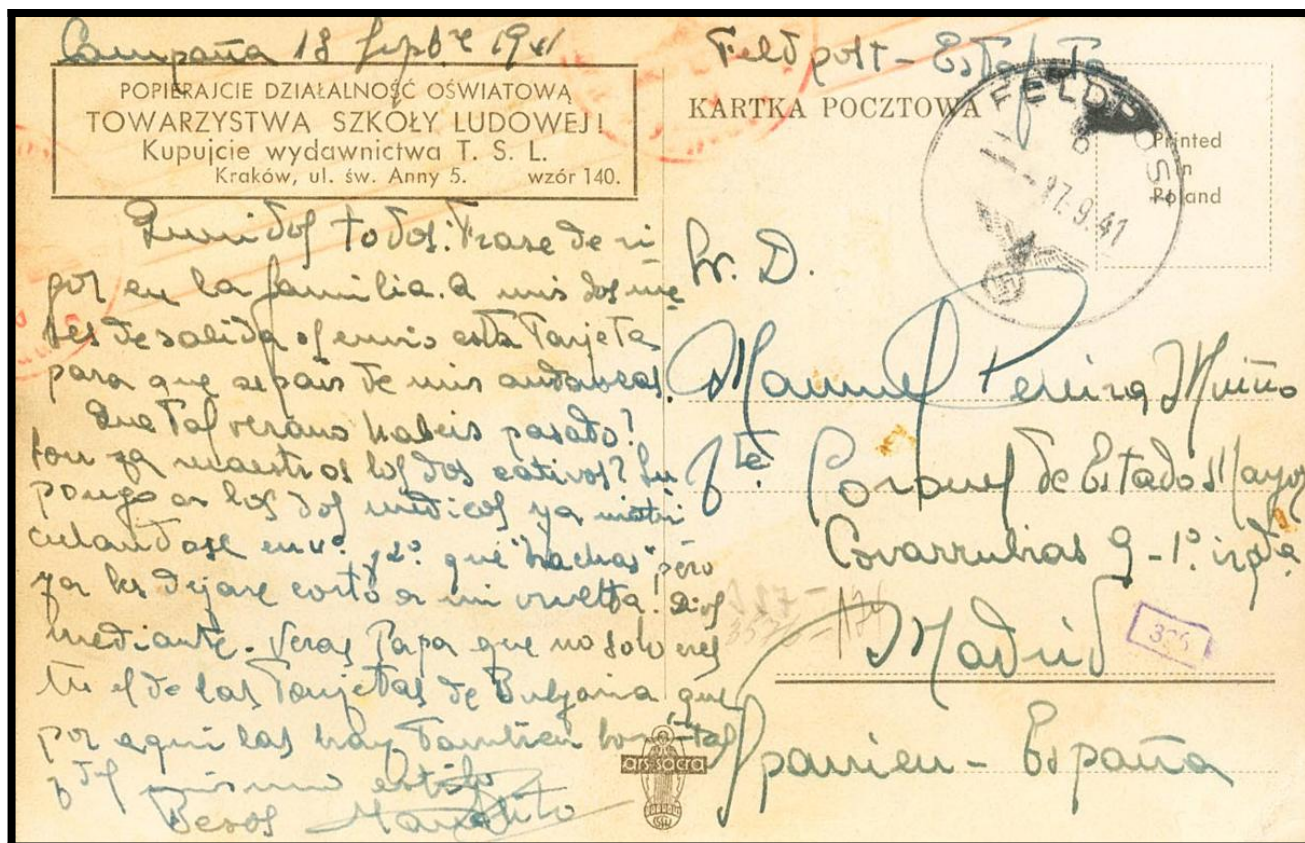 Campaña 18 Sepbre 1941
POPIERAJCIE DZIAŁALNOŚĆ OŚWIATOWĄ
TOWARZYSTWA SZKOŁY LUDOWEJ!
Kupujcie wydawnictwa T. S. L.
Kraków, ul. św. Anny 5. wzór 140.
todos: Frase de ri-
gor en la familia. A mis dos me-
ses de salida os envio esta Tarjeta
para que sepais de mis andanzas.
Que Tal verano habeis pasado?
Son ya maestros los dos cativos? Su
pongo a los dos medicos ya matri
culandose en 4º y 2º que "hachas" pero
ya les dejare corto a mi vuelta. Dios
mediante. Veras Papa que no solo eres
tu el de las Tarjetas de Bulgaria, que
por aqui las hay Tambien
y del mismo estilo
Besos Manolito
ars sacra
Feldpost - Estafeta
KARTKA POCZTOWA
FELDPOST
b
17.9.41
Printed
in
Poland
Sr. D.
Manuel Pereira Muiño
Tte. Coronel de Estado Mayor
Covarrubias 9 - 1º izqda
Madrid
Spanien - España